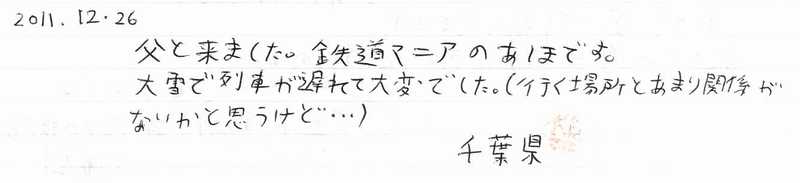 2011.12.26
父と来ました。鉄道マニアのあしまです。
大雪で列車が遅れて大変でした。(行く場所とあまり関係が
ないかと思うけど…)
千葉県